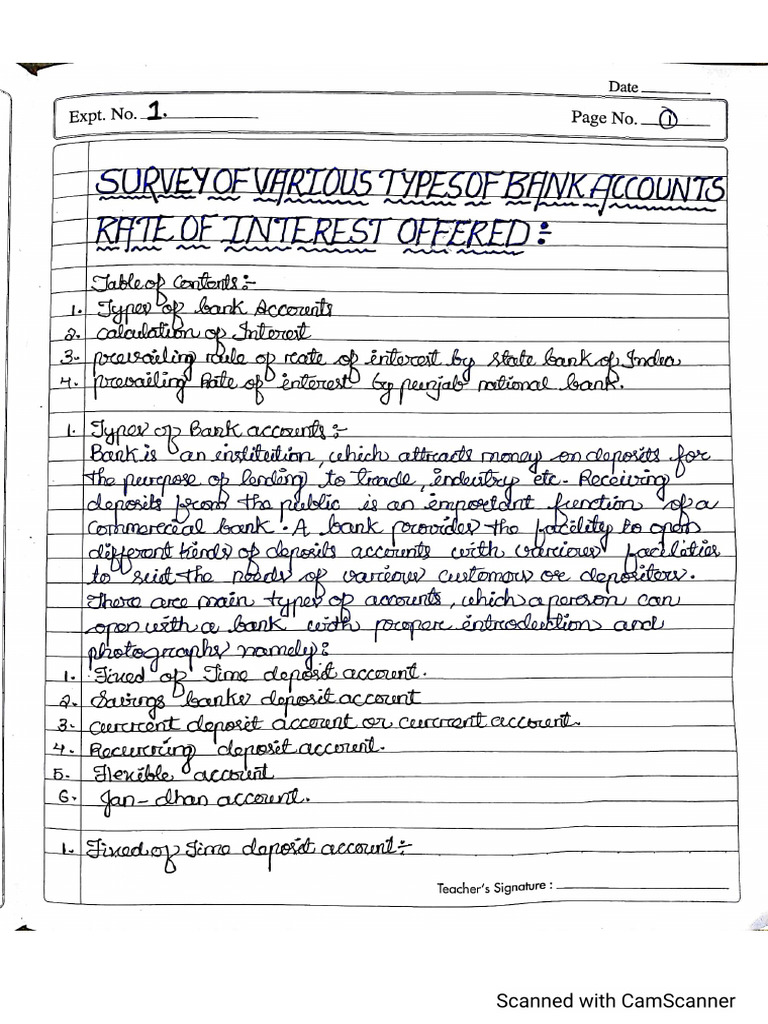 Date
Expt. No. 1.
Page No. 1
SURVEY OF VARIOUS TYPES OF BANK ACCOUNTS
RATE OF INTEREST OFFERED :
Table of Contents:-
1. Types of bank Accounts
2. Calculation of Interest
3. prevailing rule of rate of interest by state bank of India
4. prevailing Rate of interest by punjab national bank.
1. Types of Bank accounts :-
Bank is an institution, which attracts money on deposits for
the purpose of lending to trade, industry etc. Receiving
deposits from the public is an important function of a
Commercial bank. A bank provides the facility to open
different kinds of deposits accounts with various facilities
to suit the needs of various customers or depositors.
There are main types of accounts, which a person can
open with a bank with proper introduction and
photographs namely:
1. Fixed of Time deposit account.
2. Savings banks deposit account
3. current deposit account or current account.
4. Recurring deposit account.
5. Flexible account
6. Jan-dhan account.
1. Fixed of Time deposit account :-
Teacher's Signature :
Scanned with CamScanner